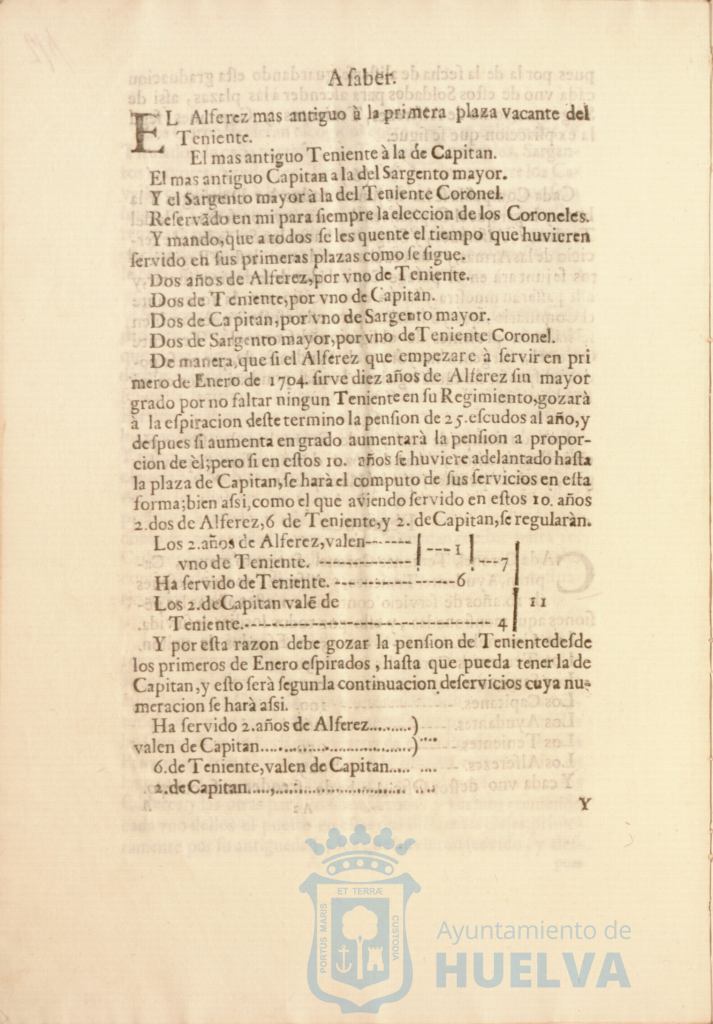 A ſaber.
EL Alferez mas antiguo à la primera plaza vacante del
Teniente.
El mas antiguo Teniente à la de Capitan.
El mas antiguo Capitan a la del Sargento mayor.
Y el Sargento mayor à la del Teniente Coronel.
Reſervādo en mi para ſiempre la eleccion de los Coroneles.
Y mando, que a todos ſe les quente el tiempo que huvieren
ſervido en ſus primeras plazas como ſe ſigue.
Dos años de Alferez, por vno de Teniente.
Dos de Teniente, por vno de Capitan.
Dos de Capitan, por vno de Sargento mayor.
Dos de Sargento mayor, por vno de Teniente Coronel.
De manera, que ſi el Alferez que empezare à ſervir en pri
mero de Enero de 1704. ſirve diez años de Alferez ſin mayor
grado por no faltar ningun Teniente en ſu Regimiento, gozarà
à la eſpiracion deſte termino la penſion de 25. eſcudos al año, y
deſpues ſi aumenta en grado aumentarà la penſion a propor-
cion de èl; pero ſi en eſtos 10. años ſe huviere adelantado haſta
la plaza de Capitan, ſe harà el computo de ſus ſervicios en eſta
forma; bien aſsi, como el que aviendo ſervido en eſtos 10. años
2. dos de Alferez, 6 de Teniente, y 2. de Capitan, ſe regularàn.
Los 2. años de Alferez, valen-------
vno de Teniente. -------------- ---1 ---7
Ha ſervido de Teniente. --- --------------6
Los 2. de Capitan valē de 11
Teniente.----------------------------------- 4
Y por eſta razon debe gozar la penſion de Teniente deſde
los primeros de Enero eſpirados, haſta que pueda tener la de
Capitan, y eſto ſerà ſegun la continuacion de ſervicios cuya nu-
meracion ſe harà aſsi.
Ha ſervido 2. años de Alferez.........)
valen de Capitan..............................)....
6. de Teniente, valen de Capitan..... ....
2. de Capitan.................................. ....
Y
ET TERRÆ
PORTUS MARIS
CUSTODIA
Ayuntamiento de
HUELVA